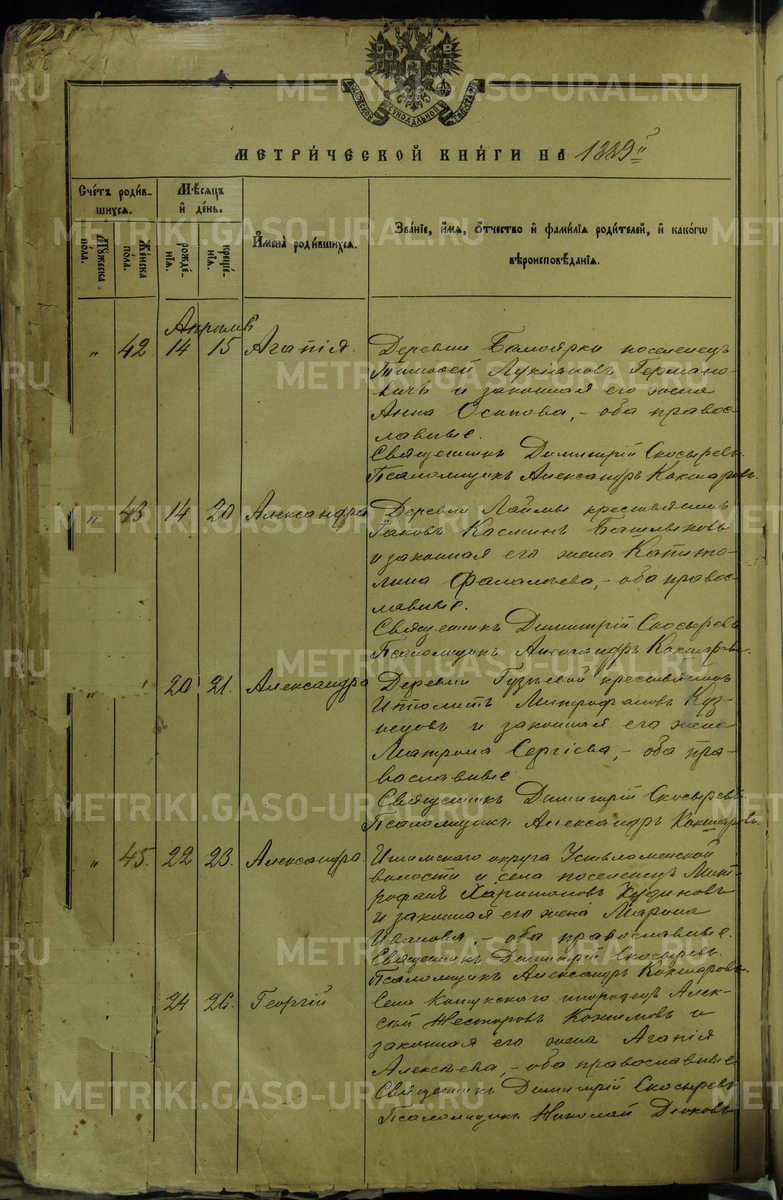 МЕТРИ́ЧЕСКОЙ КНИ́ГИ НА 1889 г.
Сче́тъ роди́в-
шихся.
Мѣ́сяцъ
и́ де́нь.
Мꙋ́жеска
по́ла.
Же́нска
по́ла.
рожде́-
нїѧ.
креще́-
нїѧ.
И҆мена̀ роди́вшихся.
Зва́нїе, и҆́мѧ, ѻ҆́тчество и҆ фами́лїѧ роди́телей, и҆ како́гѡ
вѣроисповѣ́данїѧ.
Апрѣль
„ 42 14 15 Агапія. Деревни поселенецъ
Лукіановъ Германо-
вичъ и законная его жена
Анна Осипова, – оба правос-
лавные.
Священникъ Димитрій Скосыревъ.
Псаломщикъ Александръ Кокшаровъ.
„ 43 14 20 Александра Деревни Лаймы крестьянинъ
Іаковъ Косминъ Башлыковъ
и законная его жена Капито-
лина – оба правос-
лавные.
Священникъ Димитрій Скосыревъ
Псаломщикъ Александръ Кокшаровъ.
„ 20 21. Александра Деревни крестьянинъ
Ипполитъ Митрофановъ Куз-
нецовъ и законная его жена
Матрона Сергіева, – оба пра-
вославные
Священникъ Димитрій Скосыревъ.
Псаломщикъ Александръ Кокшаровъ.
„ 45. 22 23. Александра. Ишимскаго округа Устьламенской
волости и села поселенецъ Мит-
рофанъ Харитоновъ Кудиновъ
и законная его жена
Иванова, – оба православные.
Священникъ Димитрій Скосыревъ.
Псаломщикъ Александръ Кокшаровъ.
24 26. Георгій Села инородецъ Алек-
сѣй Несторовъ и
законная его жена Агапія
Алексѣева, – оба православные
Священникъ Димитрій Скосыревъ
Псаломщикъ Николай
METRIKI.GASO-URAL.RU